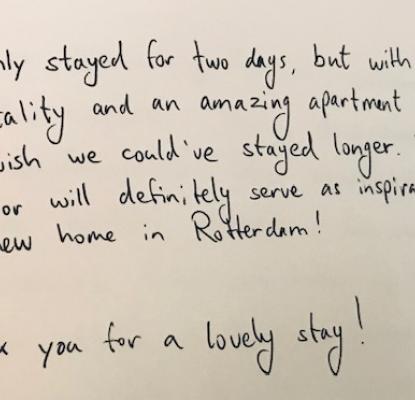 nly stayed for two days, but with
tality and an amazing apartment
ish we could've stayed longer.
or will definitely serve as inspira
ew home in Rotterdam!
you for a lovely stay!